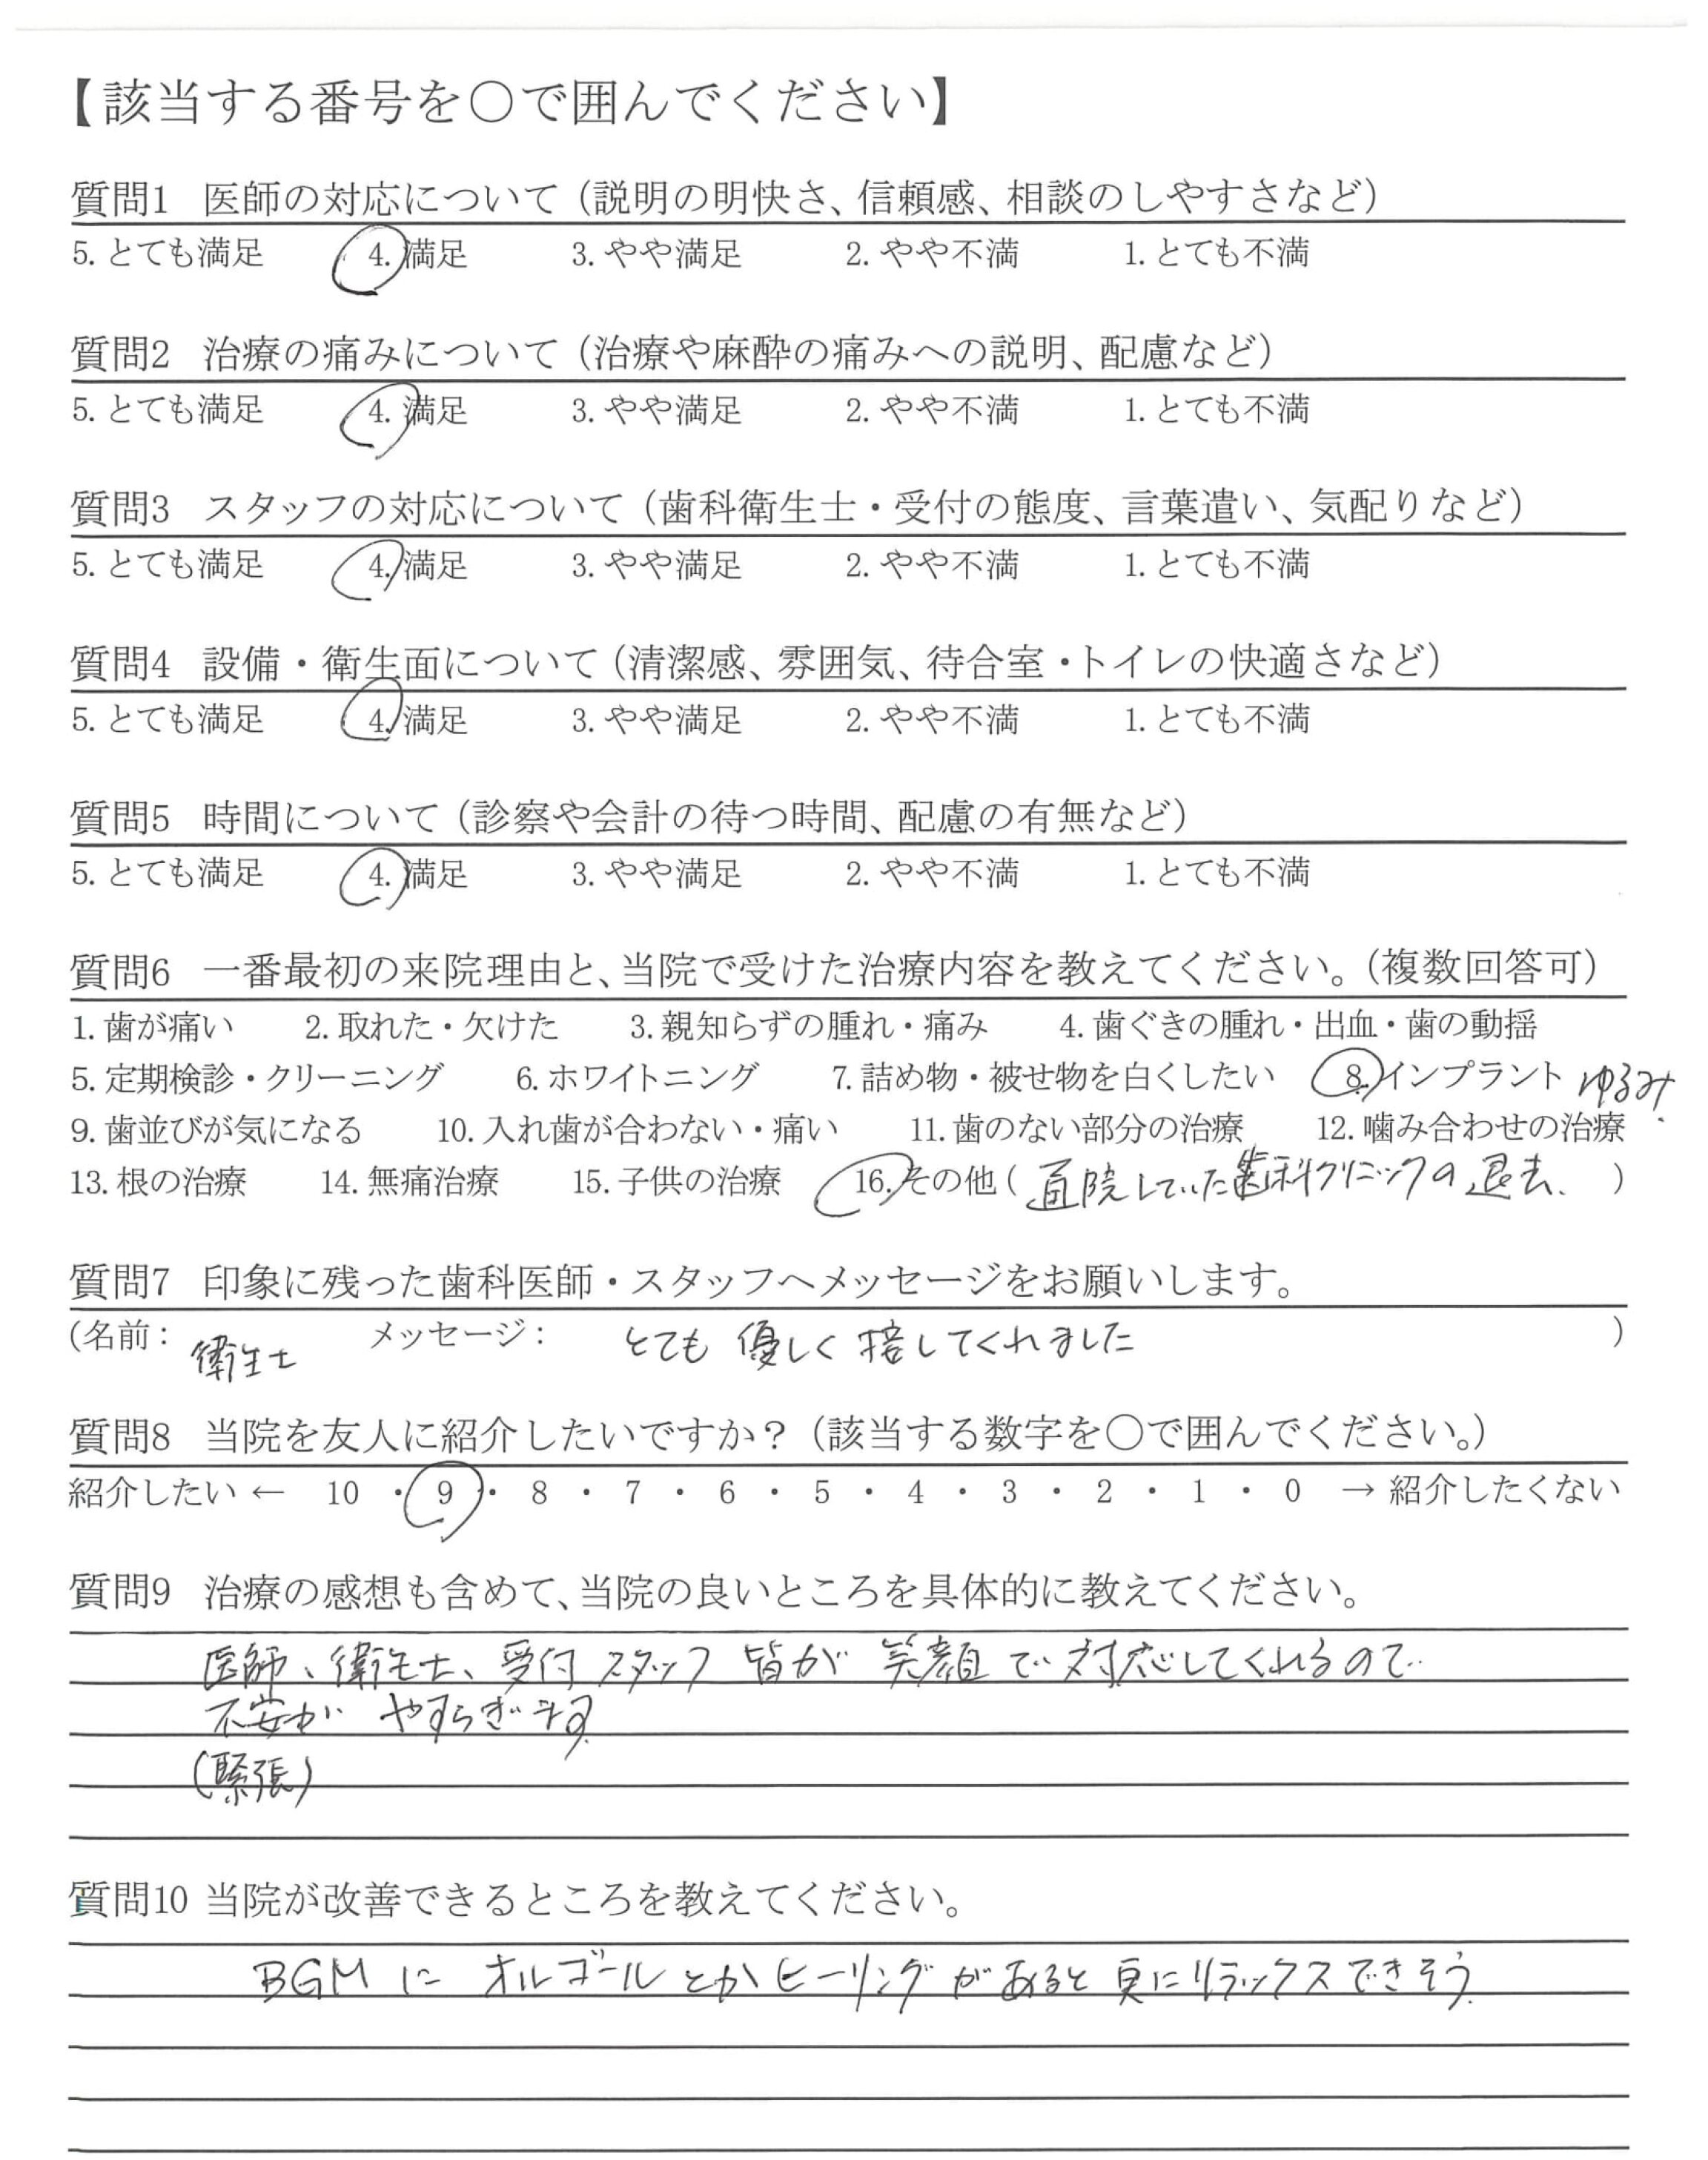 【該当する番号を〇で囲んでください】
質問1 医師の対応について（説明の明快さ、信頼感、相談のしやすさなど）
5. とても満足 4. 満足 3. やや満足 2. やや不満 1. とても不満
質問2 治療の痛みについて（治療や麻酔の痛みへの説明、配慮など）
5. とても満足 4. 満足 3. やや満足 2. やや不満 1. とても不満
質問3 スタッフの対応について（歯科衛生士・受付の態度、言葉遣い、気配りなど）
5. とても満足 4. 満足 3. やや満足 2. やや不満 1. とても不満
質問4 設備・衛生面について（清潔感、雰囲気、待合室・トイレの快適さなど）
5. とても満足 4. 満足 3. やや満足 2. やや不満 1. とても不満
質問5 時間について（診察や会計の待つ時間、配慮の有無など）
5. とても満足 4. 満足 3. やや満足 2. やや不満 1. とても不満
質問6 一番最初の来院理由と、当院で受けた治療内容を教えてください。（複数回答可）
1. 歯が痛い 2. 取れた・欠けた 3. 親知らずの腫れ・痛み 4. 歯ぐきの腫れ・出血・歯の動揺
5. 定期検診・クリーニング 6. ホワイトニング 7. 詰め物・被せ物を白くしたい 8. インプラント ゆるみ.
9. 歯並びが気になる 10. 入れ歯が合わない・痛い 11. 歯のない部分の治療 12. 噛み合わせの治療
13. 根の治療 14. 無痛治療 15. 子供の治療 16. その他（ 院していた歯科クリニックの退去、 ）
質問7 印象に残った歯科医師・スタッフへメッセージをお願いします。
（名前： 衛生士 メッセージ： とても 優しく 接してくれました ）
質問8 当院を友人に紹介したいですか？（該当する数字を〇で囲んでください。）
紹介したい ← 10 ・ 9 ・ 8 ・ 7 ・ 6 ・ 5 ・ 4 ・ 3 ・ 2 ・ 1 ・ 0 → 紹介したくない
質問9 治療の感想も含めて、当院の良いところを具体的に教えてください。
医師、衛生士、受付 スタッフ 皆が 笑顔で 対応してくれるので
不安が やすらぎます
（緊張）
質問10 当院が改善できるところを教えてください。
BGMに オルゴールとかヒーリングがあると更にリラックスできそう.